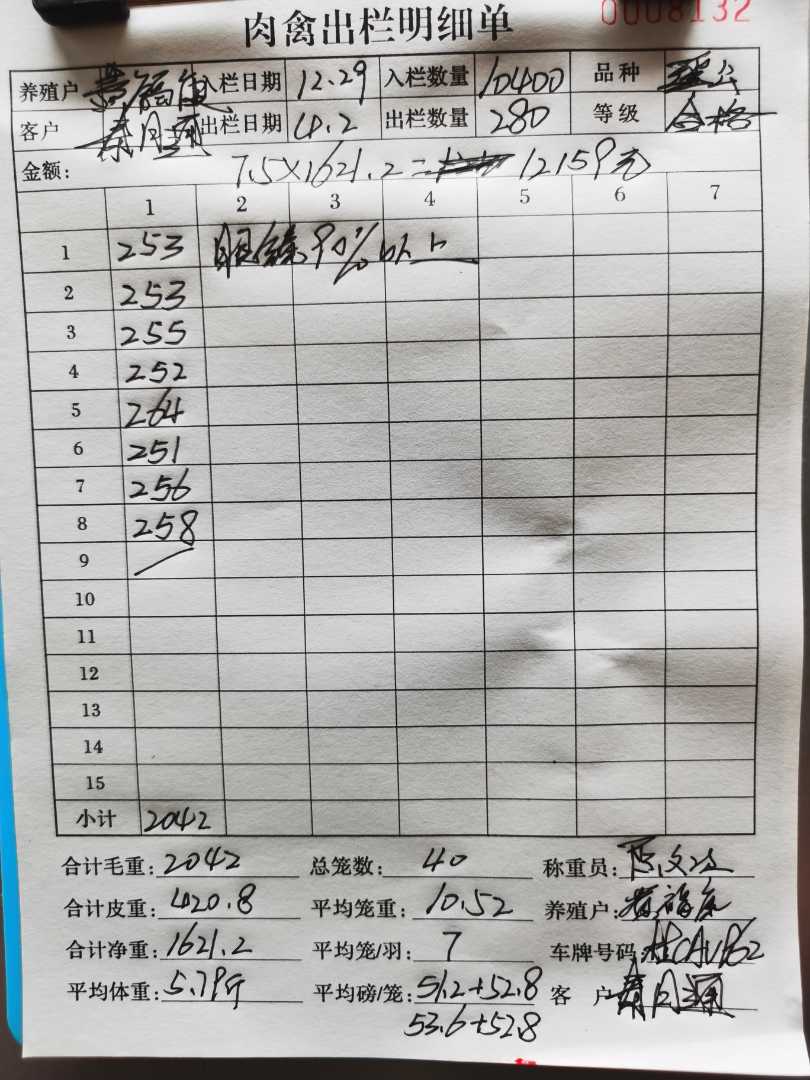 0008132
肉禽出栏明细单
养殖户 入栏日期 12.29 入栏数量 10400 品种
客户 秦月 出栏日期 4.2 出栏数量 280 等级 合格
金额: 7.5×1621.2= 12159元
1 2 3 4 5 6 7
1 253 90%以上
2 253
3 255
4 252
5 264
6 251
7 256
8 258
9
10
11
12
13
14
15
小计 2042
合计毛重: 2042 总笼数: 40 称重员:
合计皮重: 420.8 平均笼重: 10.52 养殖户:
合计净重: 1621.2 平均笼/羽: 7 车牌号码:
平均体重: 5.79斤 平均磅/笼: 51.2+52.8 客 户 秦月
53.6+52.8